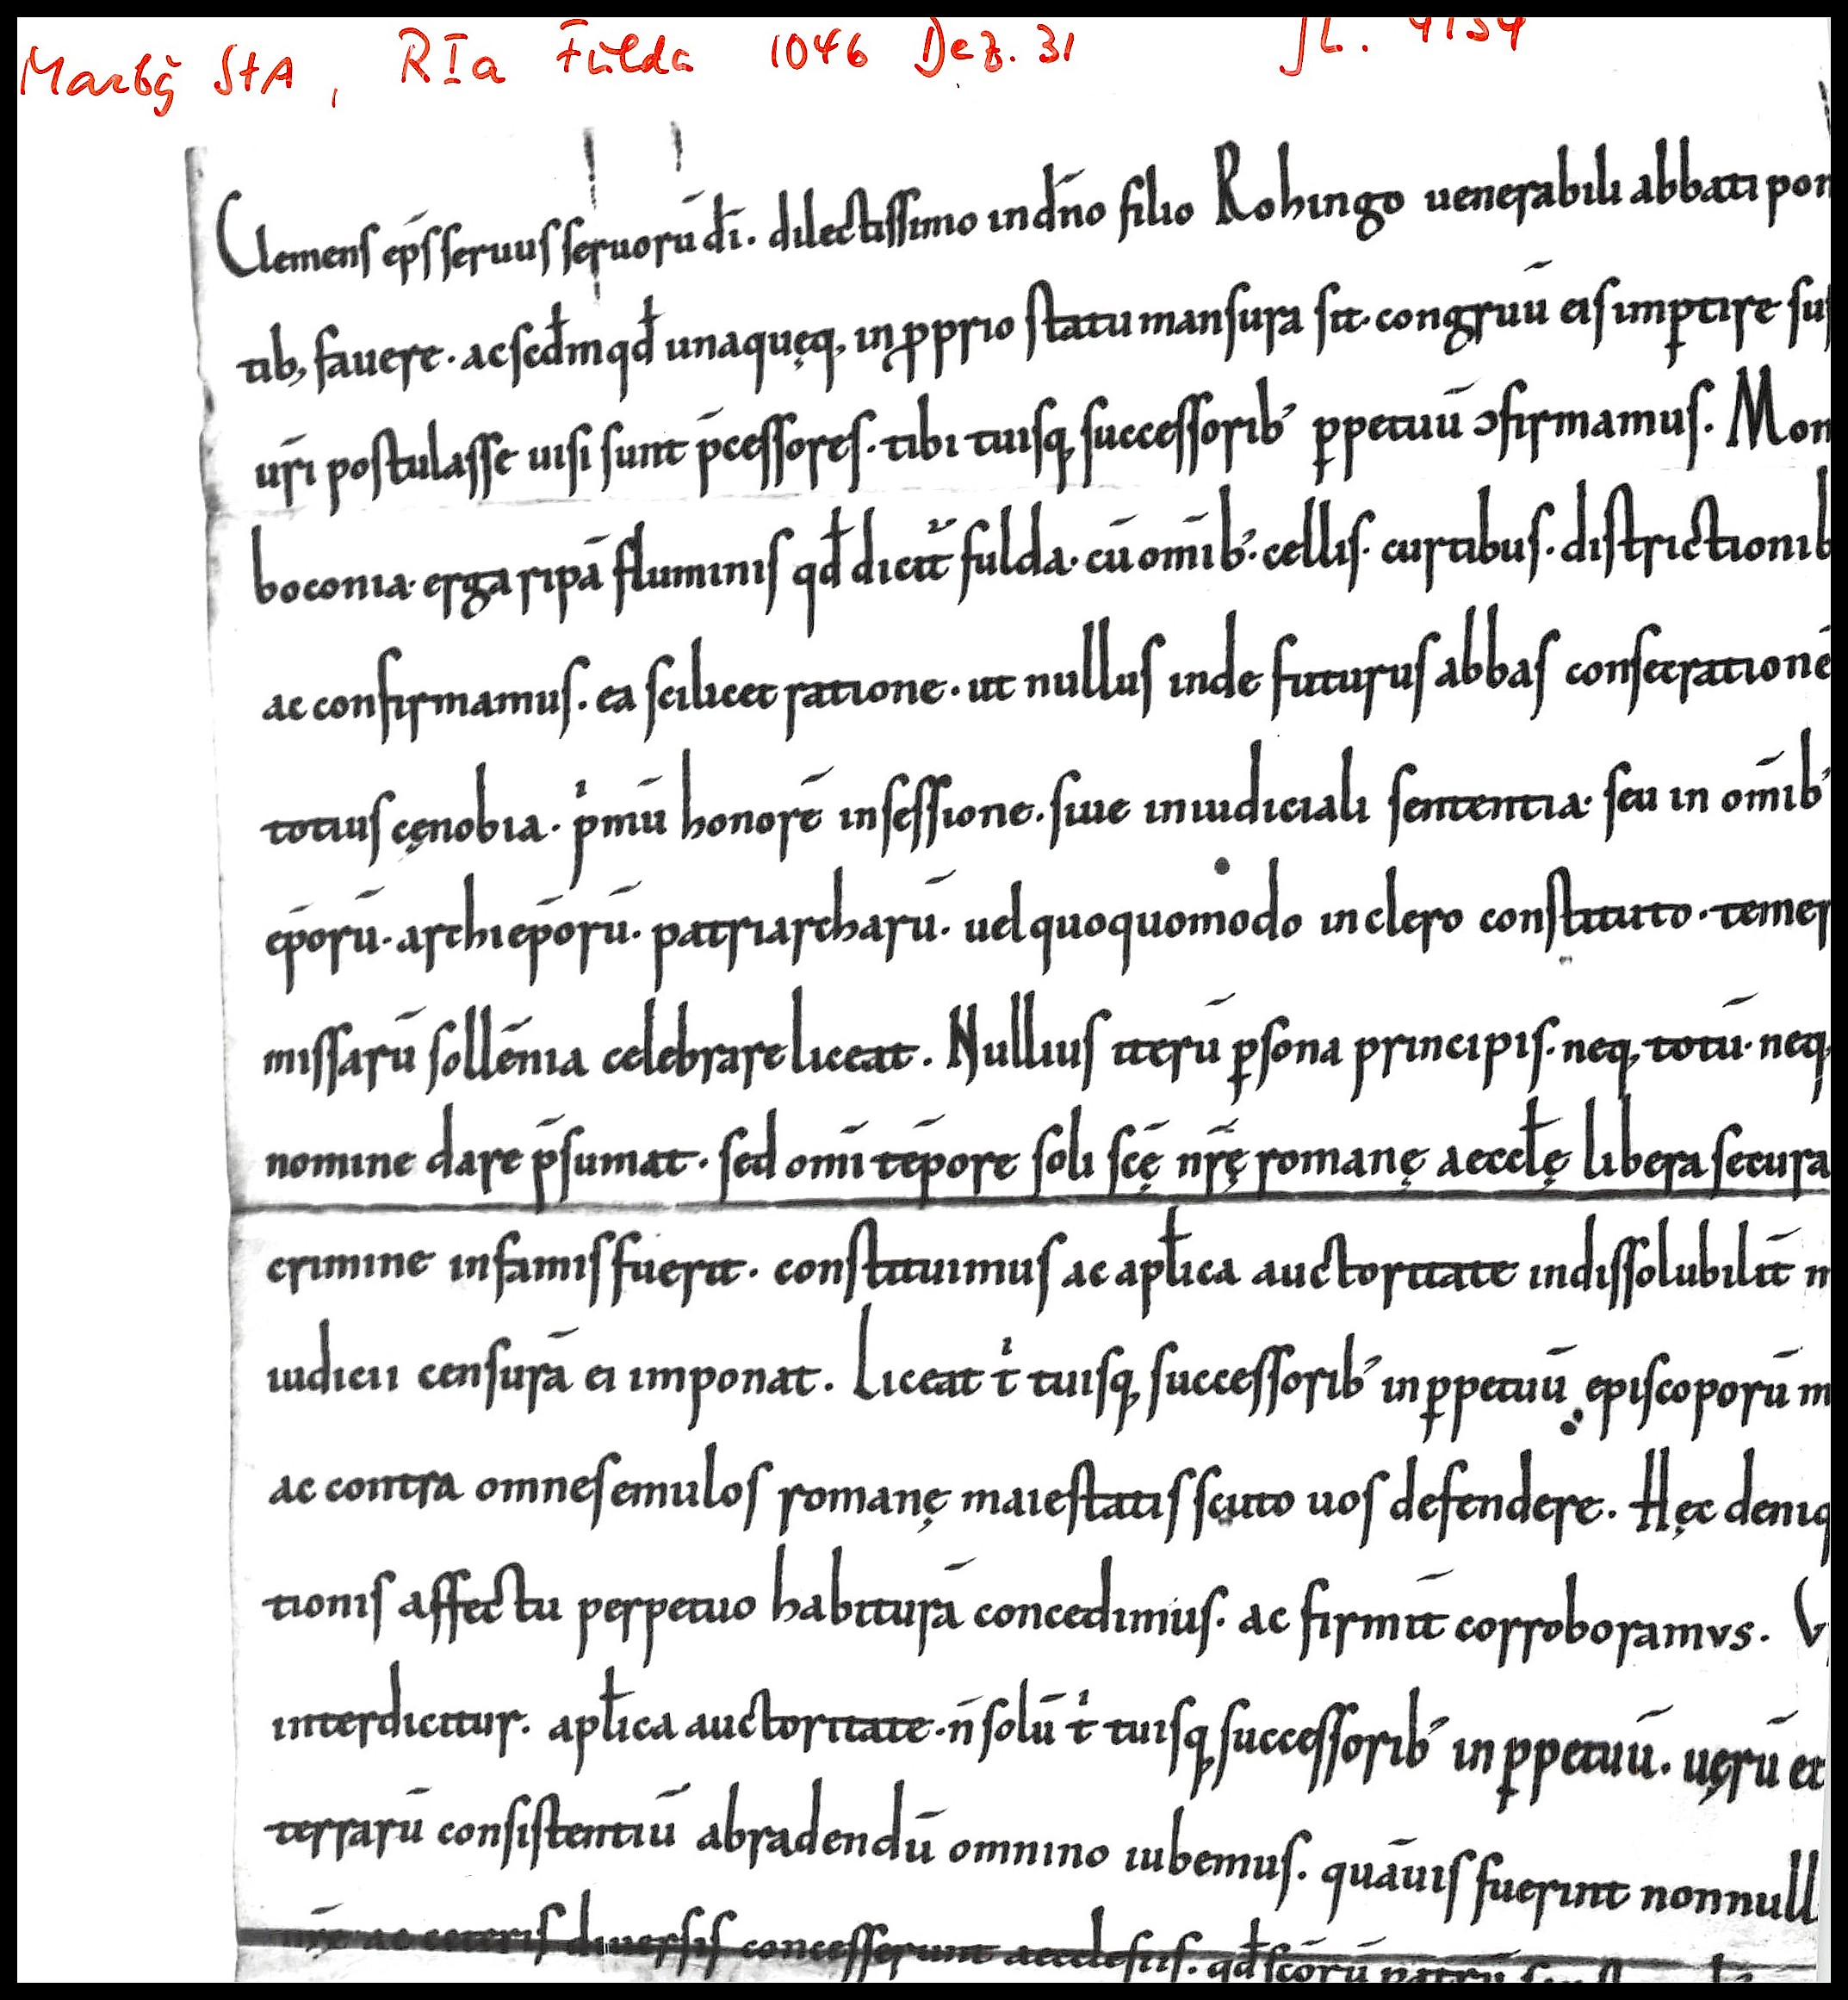 Marbg̃ StA, RIa Fulda 1046 Dez. 31 JL. 4134
Clemens ep̄s seruus seruorū dī. dilectissimo in dn̄o filio Rohingo uenerabili abbati pon
tib; fauere. ac scđm qđ unaquęq; in ꝓprio statu mansura sit. congruū eis imꝑtire su
ur̄i postulasse uisi sunt p̄cessores. tibi tuisq; successorib' ꝑpetuū ɔfirmamus. Mon
boconia. erga ripā fluminis qđ dicit̄ fulda. cū om̄ib'. cellis. curtibus. districtionib
ac confirmamus. ea scilicet ratione. ut nullus inde futurus abbas consecrationē
totius cęnobia. pͥmū honorē in sessione. siue in iudiciali sententia. seu in om̄ib'
ep̄orū. archiep̄orū. patriarcharū. uel quoquomodo in clero constituto. temer
missarū sollēnia celebrare liceat. Nullius iterū ꝑsona principis. neq; totū. neq;
nomine dare p̄sumat. sed om̄i tēpore soli scę̄ nr̄ę romanę aeccłę libera secura
crimine infamis fuerit. constituimus ac apłica auctoritate indissolubilit̄
iudicii censurā ei imponat. Liceat tͥ tuisq; successorib' in ꝑpetuū episcoporū
ac contra omnes emulos romanę maiestatis scuto uos defendere. Hęc deniq
tionis affectu perpetuo habiturā concedimus. ac firmit̄ corroboramvs. V
interdicitur. apłica auctoritate. n̄ solū tͥ tuisq; successorib' in ꝑpetuū. uęrū et
terrarū consistentiū abradendū omnino iubemus. quāuis fuerint nonnull
ac ceteris diuersis concesserunt aecclesiis. qđ scōrū patrū